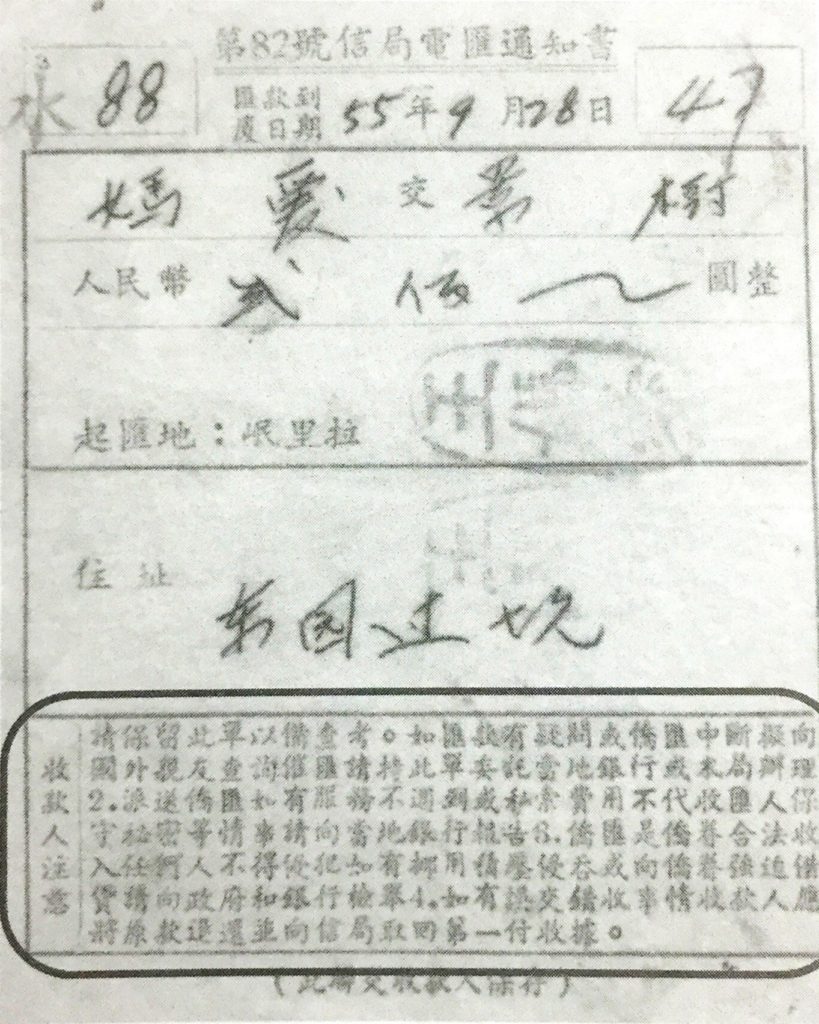 第82號信局電匯通知書
水 88
匯款到廈日期 55年9月28日
47
媽愛 交 業樹
人民幣 貳佰 圓整
起匯地：岷里拉
住址
東园过坑
收款人注意
請保留此單以備查考。如匯款有疑問或僑匯中斷擬向
國外親友查詢催匯請持此單委託當地銀行或本局辦理
2.派送僑匯如有服務不週到或私索費用不代收匯人保
守祕密等情事請向當地銀行報告3.僑匯是僑眷合法收
入任何人不得侵犯如有挪用積壓侵吞或向僑眷強迫借
貸請向政府和銀行檢舉4.如有誤交錯收事情收款人應
將原款退還並向信局取回第一付收據。
(此聯交收款人保存)